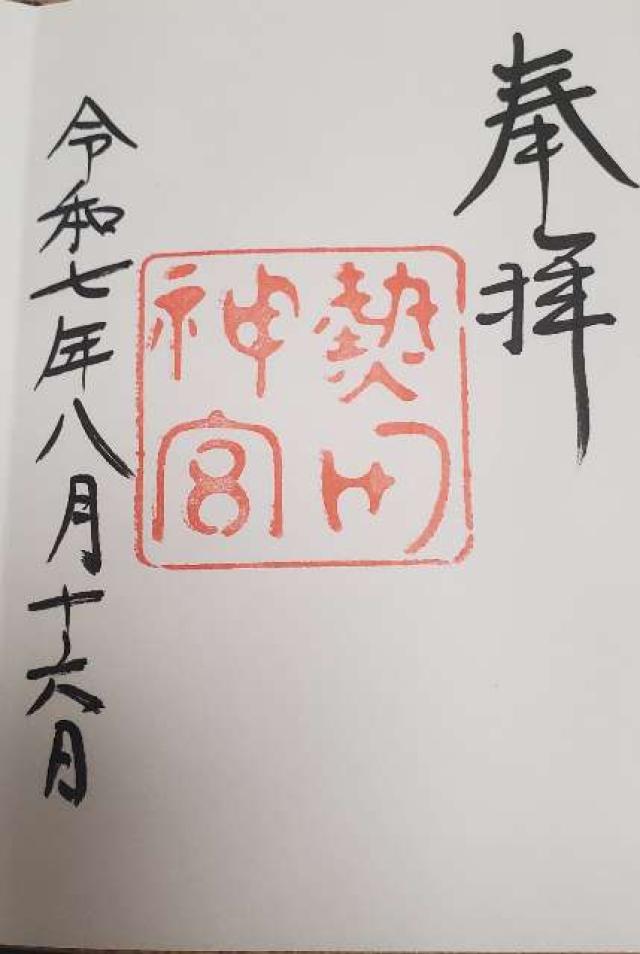 奉拝
熱田
神宮
令和七年八月十六日